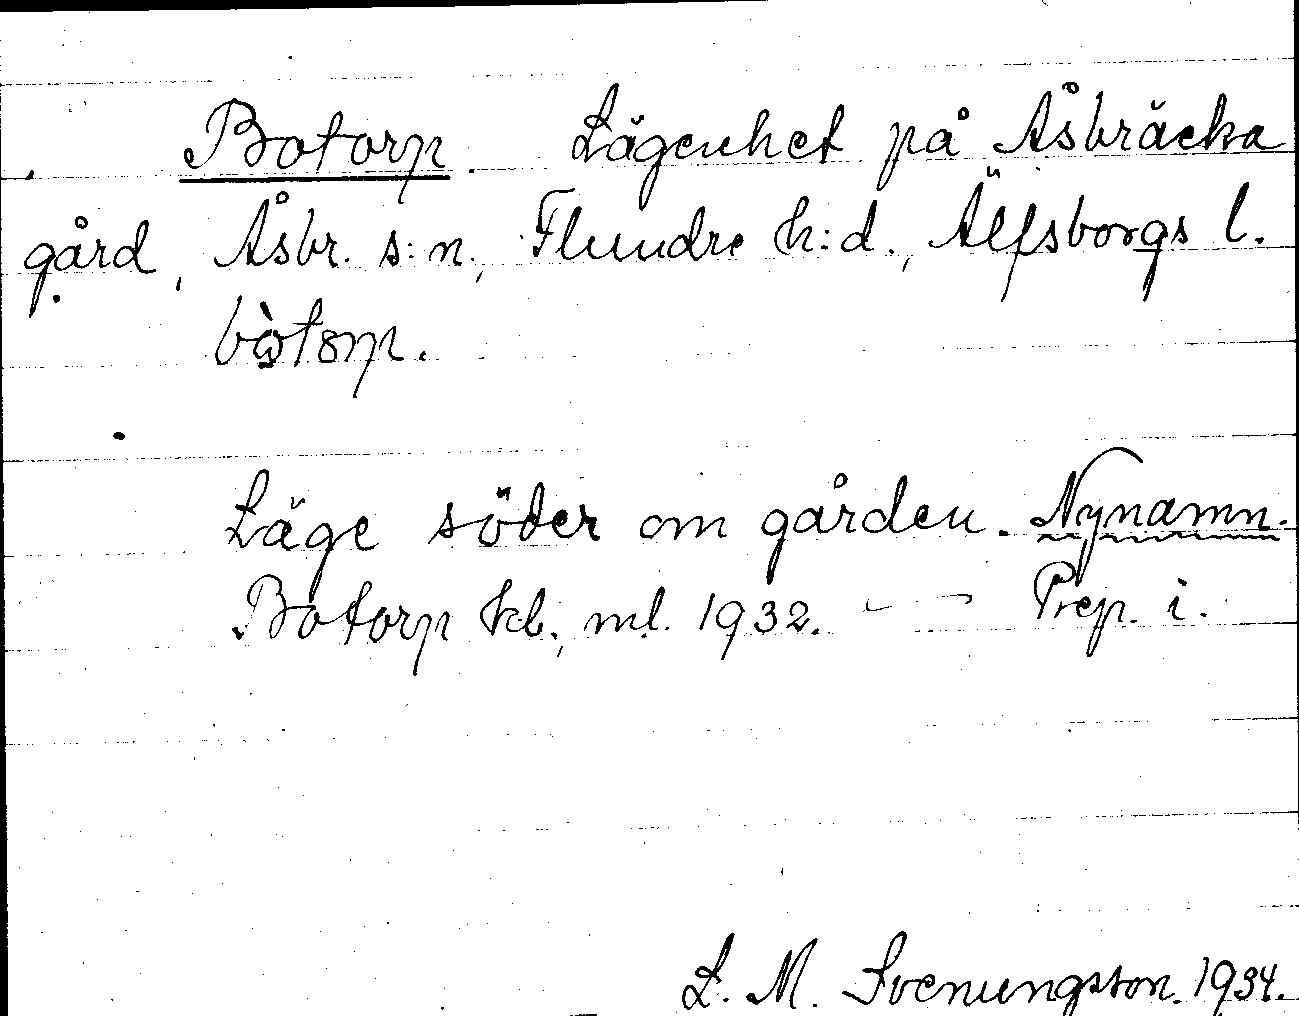 Botorp. Lägenhet på Åsbräcka
gård, Åsbr. s:n, Flundre h:d., Älfsborgs l.
bòtorp.
Läge söder om gården. Nynamn.
Botorp kb., ml. 1932. — Prep. i.
L. M. Svenungsson. 1934.